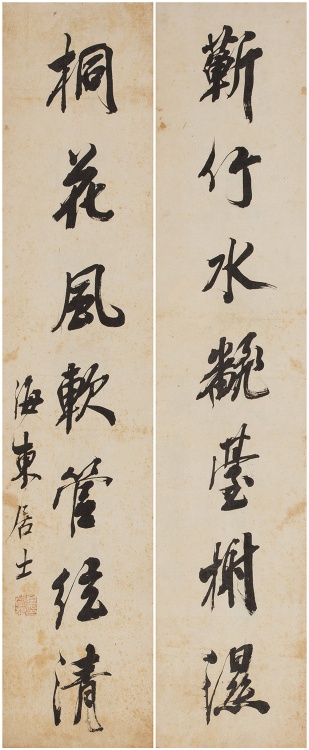 蘄竹水翻臺榭濕
桐花風軟管弦清
海東居士